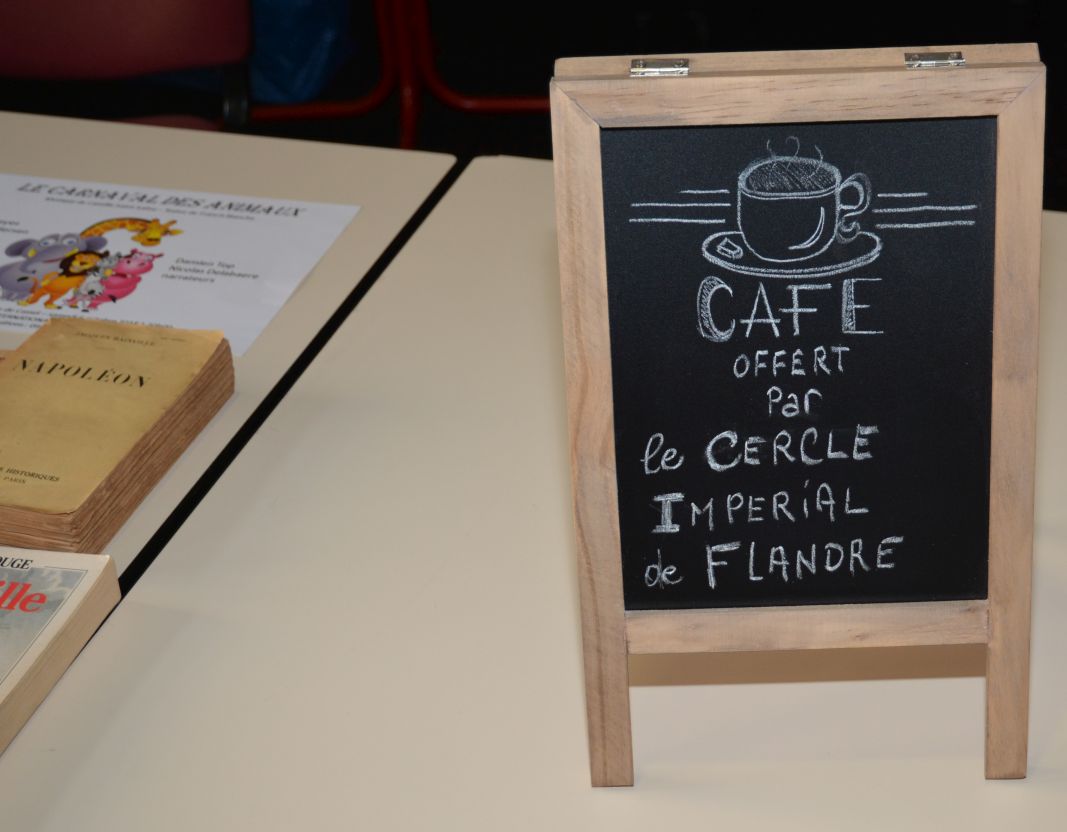 LE CARNAVAL DES ANIMAUX
Damien Top
Nicolas Delahaere
narrateurs
JACQUES BAINVILLE
NAPOLÉON
HISTORIQUES
PARIS
OUGE
ille
CAFE
OFFERT
Par
le CERCLE
IMPERiAL
de FLANDRE